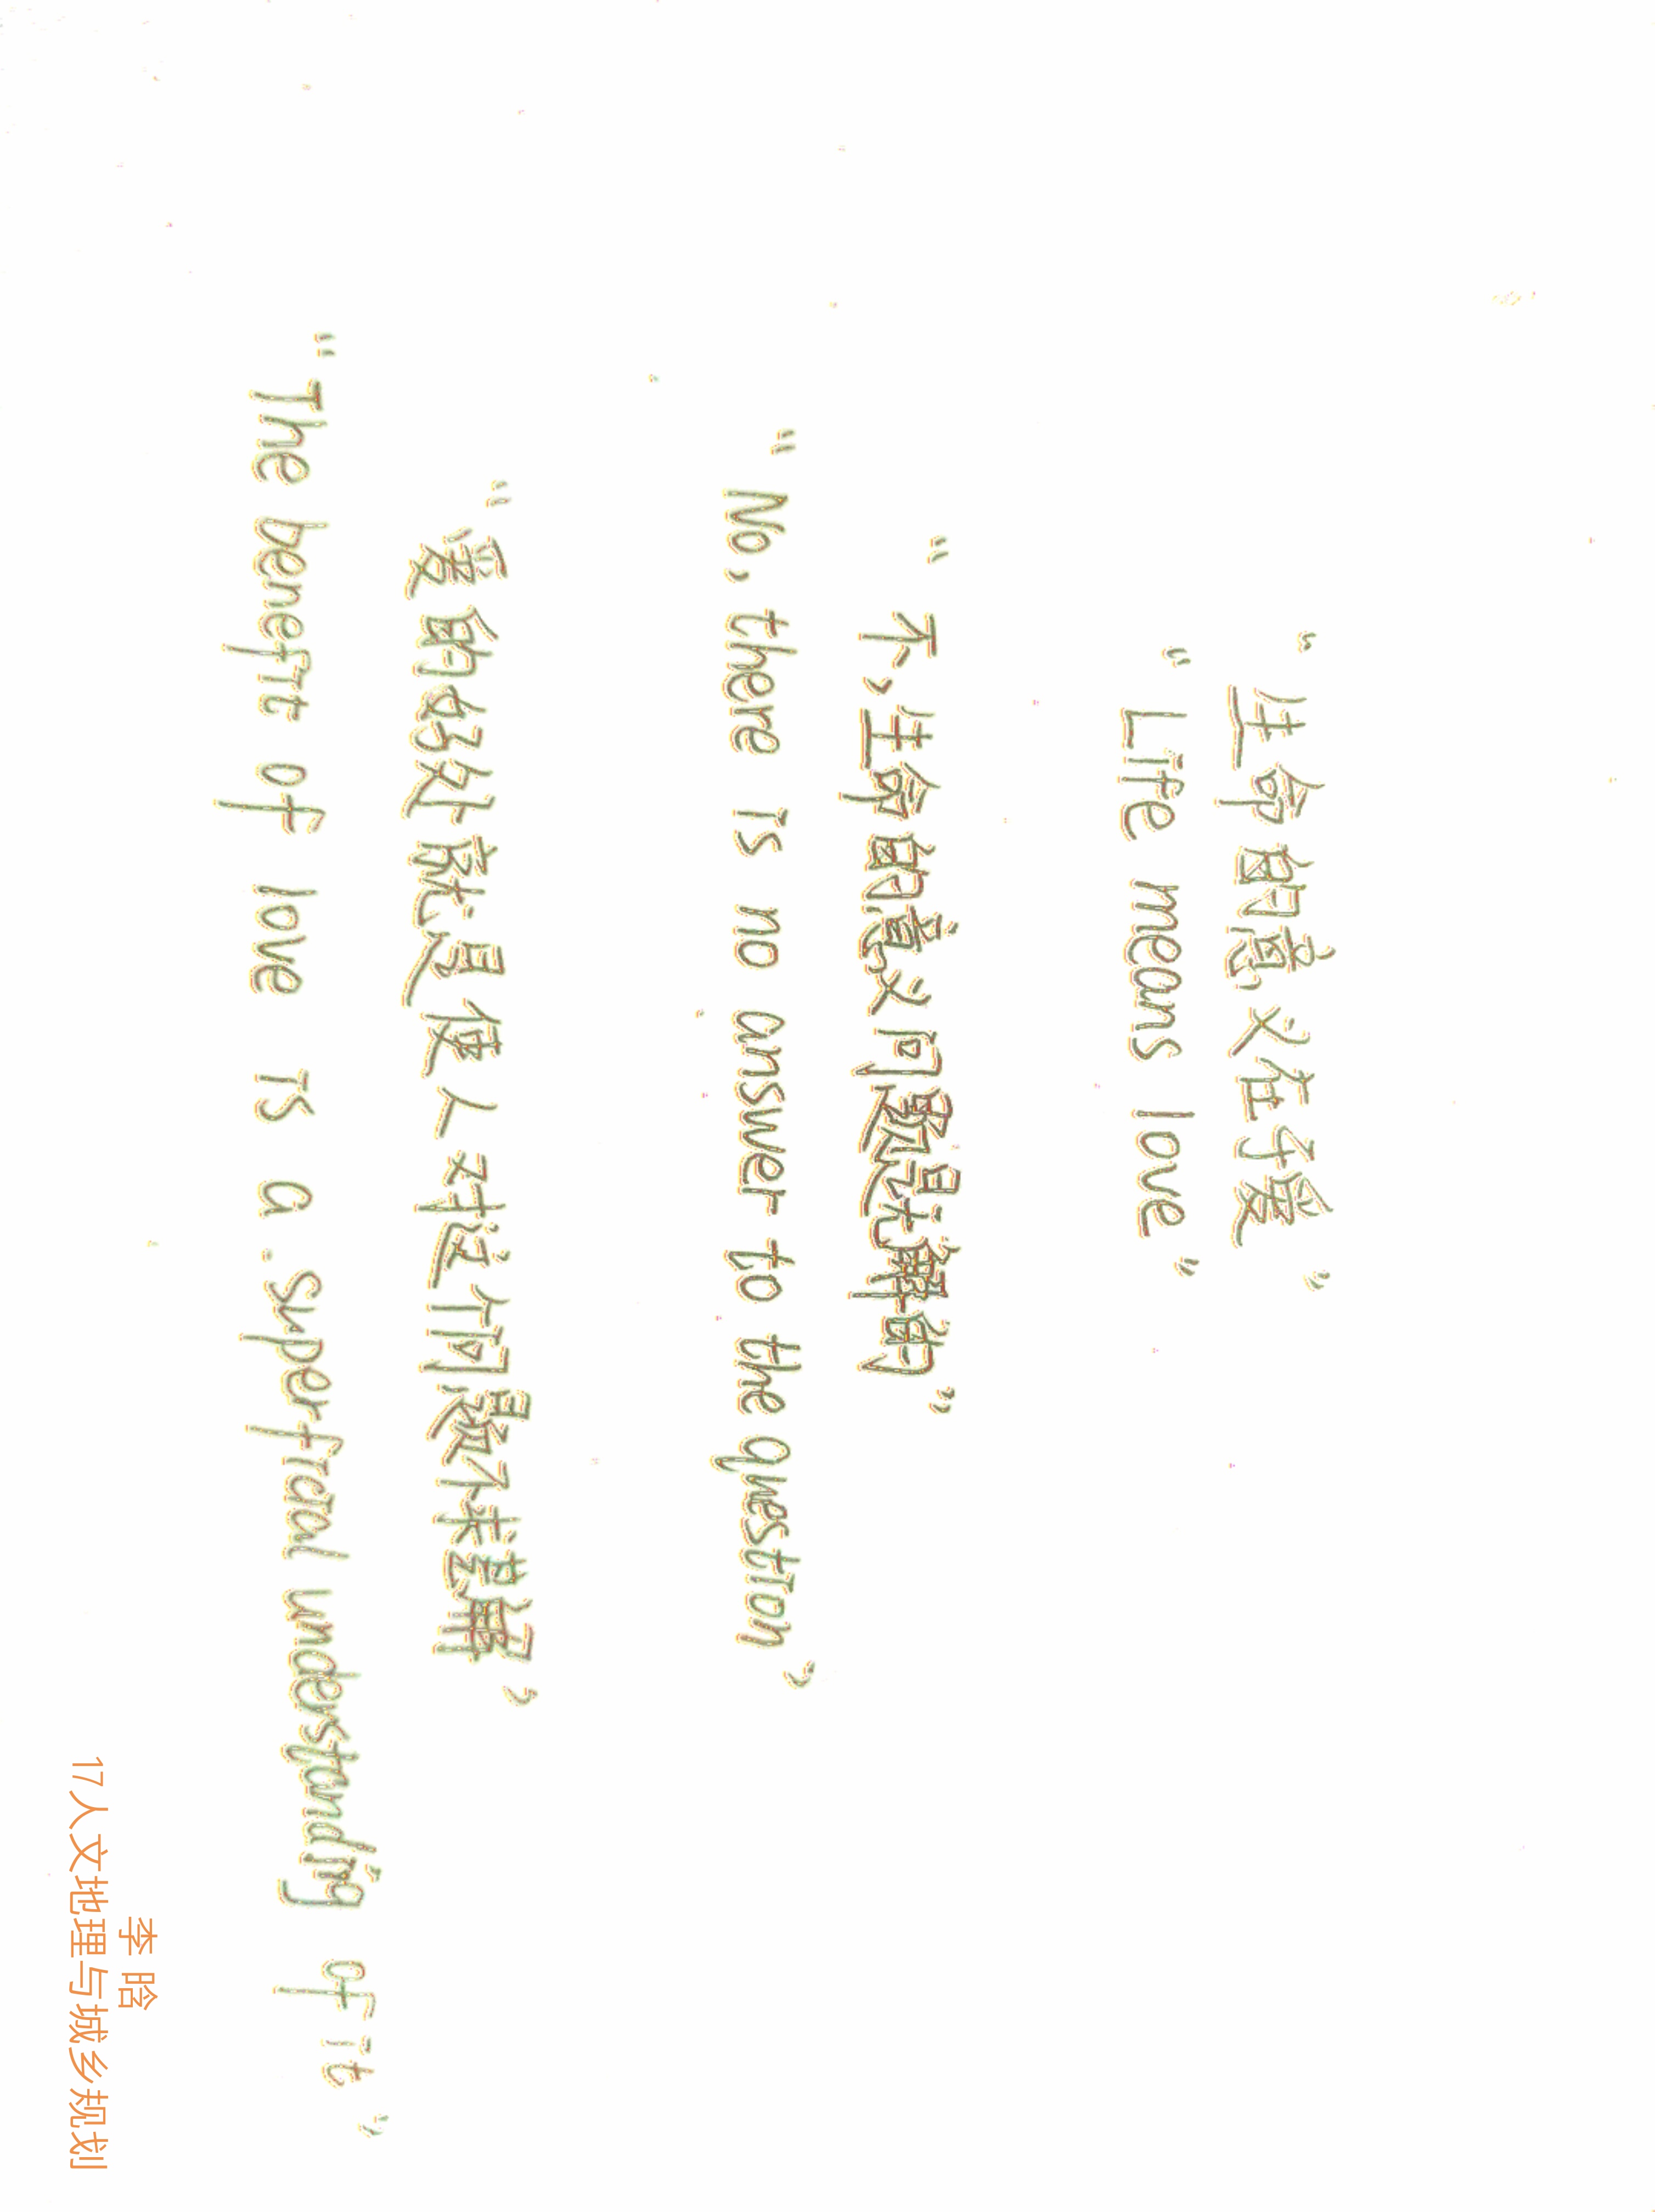 “生命的意义在于爱”
“Life means love”
“不,生命的意义问题是无解的”
“No, there is no answer to the question”
“爱的好处就是使人对这个问题不求甚解”
“The benefit of love is a superficial understanding of it”
李晗
17人文地理与城乡规划